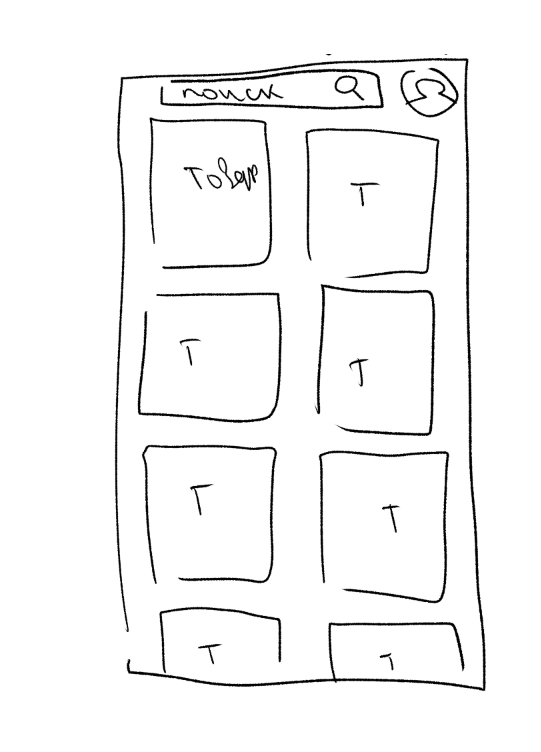 поиск
Товар
Т
Т
Т
Т
Т
Т
Т